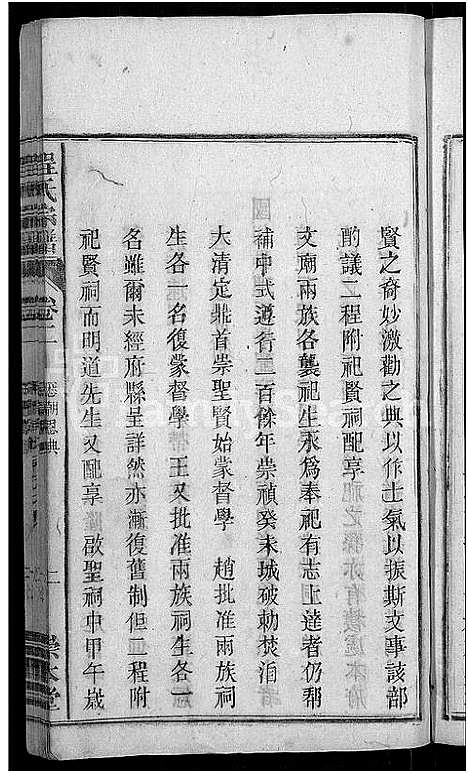 賢之奇妙激勸之典以作士氣以振斯文事該部
酌議二程附祀賢祠配享
文廟兩族各襲祀生永爲奉祀有志上達者仍郡
補中式遵行二百餘年崇禎癸未城破勅焚洎
大清定鼎首崇聖賢始蒙督學 趙批准兩族祠
生各一名復蒙督學 王又批准兩族祠生各一
名雖爾未經府縣呈詳然亦漸復舊制但二程附
祀賢祠而明道先生又配享啟聖祠中甲午歲
程氏宗譜
卷二
歷朝恩典
二